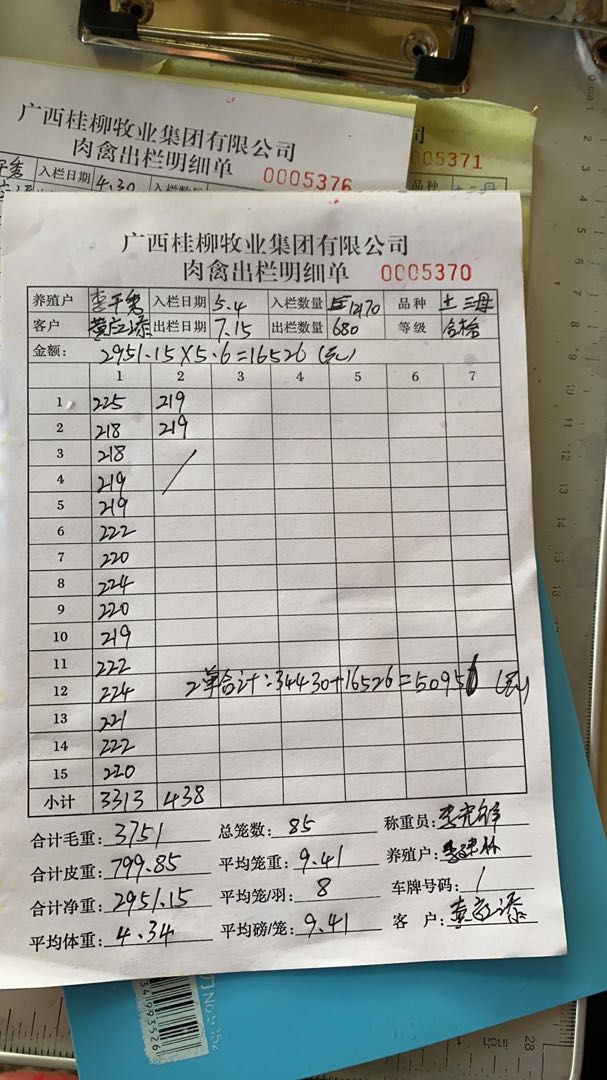 广西桂柳牧业集团有限公司
肉禽出栏明细单 0005376
司
0005371
入栏日期 4.30 入栏数
品种 土三母
广西桂柳牧业集团有限公司
肉禽出栏明细单 0005370
养殖户 李 入栏日期 5.4 入栏数量 1270 品种 土三母
客户 黄 出栏日期 7.15 出栏数量 680 等级 合格
金额: 2951.15×5.6=16526(元)
1 2 3 4 5 6 7
1 225 219
2 218 219
3 218
4 219
5 219
6 222
7 220
8 224
9 220
10 219
11 222
12 224 2单合计:34430+16526=50956(元)
13 221
14 222
15 220
小计 3313 438
合计毛重: 3751 总笼数: 85 称重员: 李
合计皮重: 799.85 平均笼重: 9.41 养殖户: 李
合计净重: 2951.15 平均笼/羽: 8 车牌号码: /
平均体重: 4.34 平均磅/笼: 9.41 客 户: 黄
34993526
inch
28